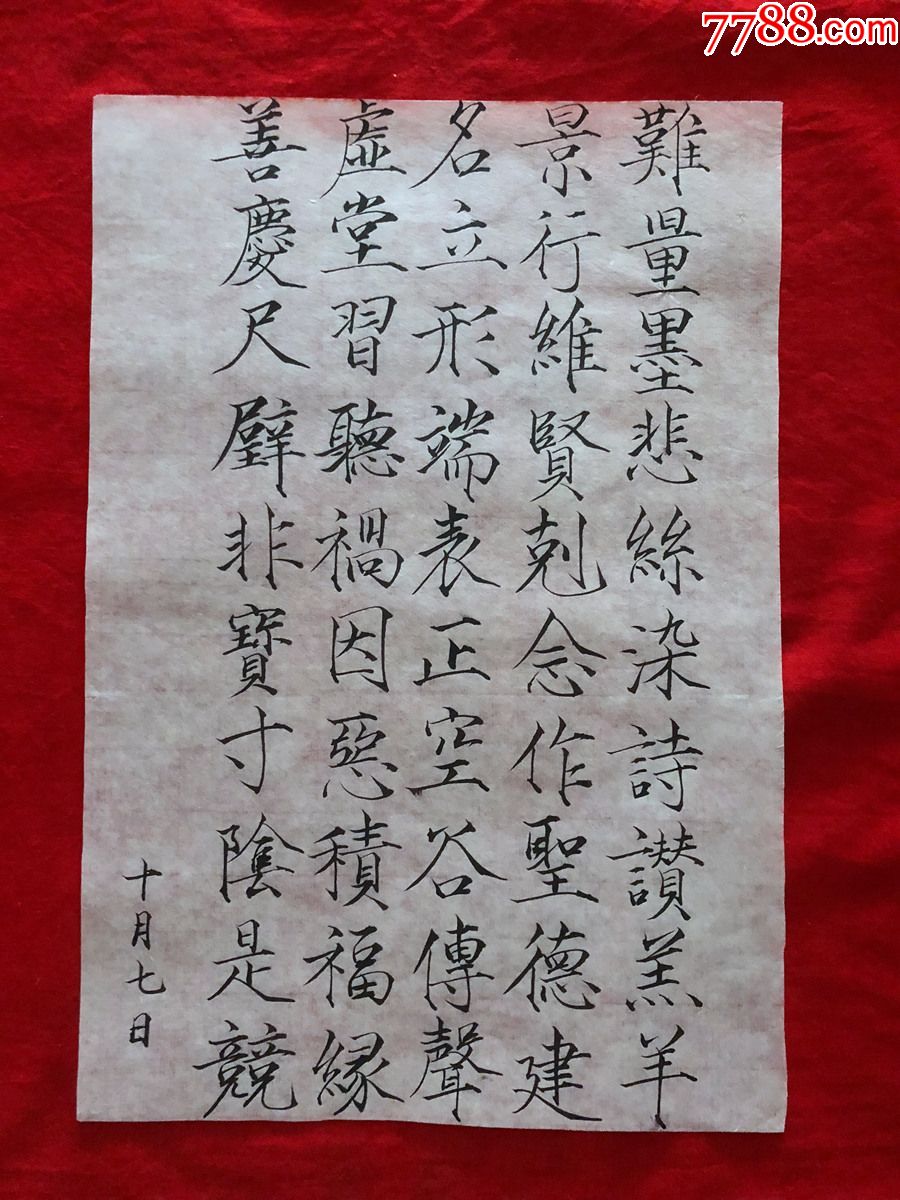 7788.com
難量墨悲絲染詩讃羔羊
景行維賢剋念作聖德建
名立形端表正空谷傳聲
虛堂習聽禍因惡積福緣
善慶尺璧非寶寸陰是競
十月七日